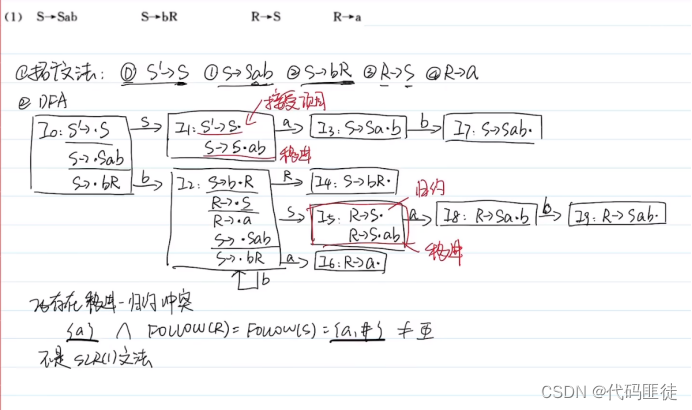 (1) S→Sab S→bR R→S R→a
①拓广文法: ⓪ S'→S ①S→Sab ②S→bR ③R→S ④R→a
② DFA
接受项目
I0: S'→·S S I1: S'→S· a I3: S→Sa·b b I7: S→Sab·
S→·Sab S→S·ab 移进
S→·bR b I2: S→b·R R I4: S→bR·
R→·S 归约
R→·a S I5: R→S· a I8: R→Sa·b b I9: R→Sab·
S→·Sab R→S·ab
S→·bR a I6: R→a· 移进
b
I5存在移进-归约冲突
{a} ∧ FOLLOW(R)=FOLLOW(S)={a,#} ≠
不是SLR(1)文法
CSDN @代码匪徒